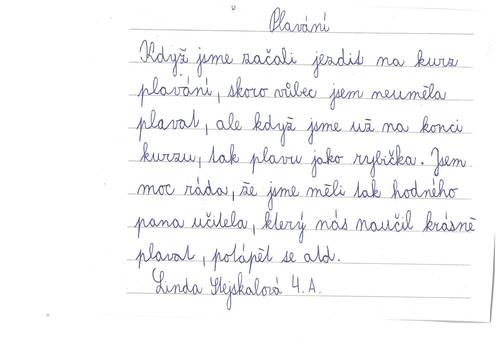 Plavání
Když jsme začali jezdit na kurz
plavání, skoro vůbec jsem neuměla
plavat, ale když jsme už na konci
kurzu, tak plavu jako rybička. Jsem
moc ráda, že jsme měli tak hodného
pana učitela, který nás naučil krásně
plavat, potápět se atd.
Linda Stejskalová 4. A.